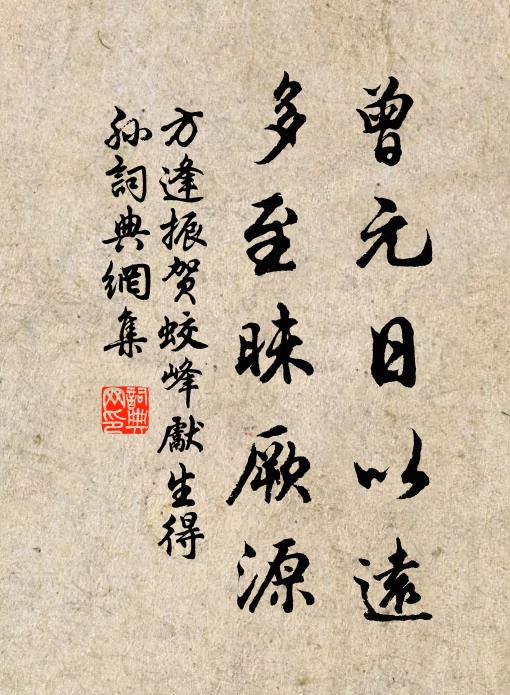 曾元日以遠
多至昧厥源
方逢振贺蛟峰獻生得
孙詞典網集
詞典
网印